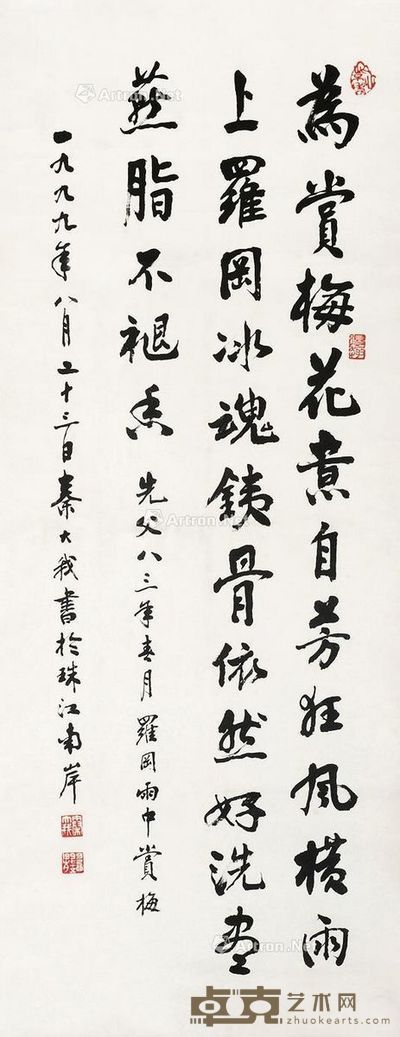 為賞梅花意自芳狂風橫雨
上羅岡冰魂銕骨依然好洗盡
燕脂不褪香 先父八三年春月羅岡雨中賞梅
一九九九年八月二十三日秦大我書於珠江南岸
Artron.Net
Artron.Net
Artron.Net
Artron.Net
卓克艺术网
www.zhuokearts.com